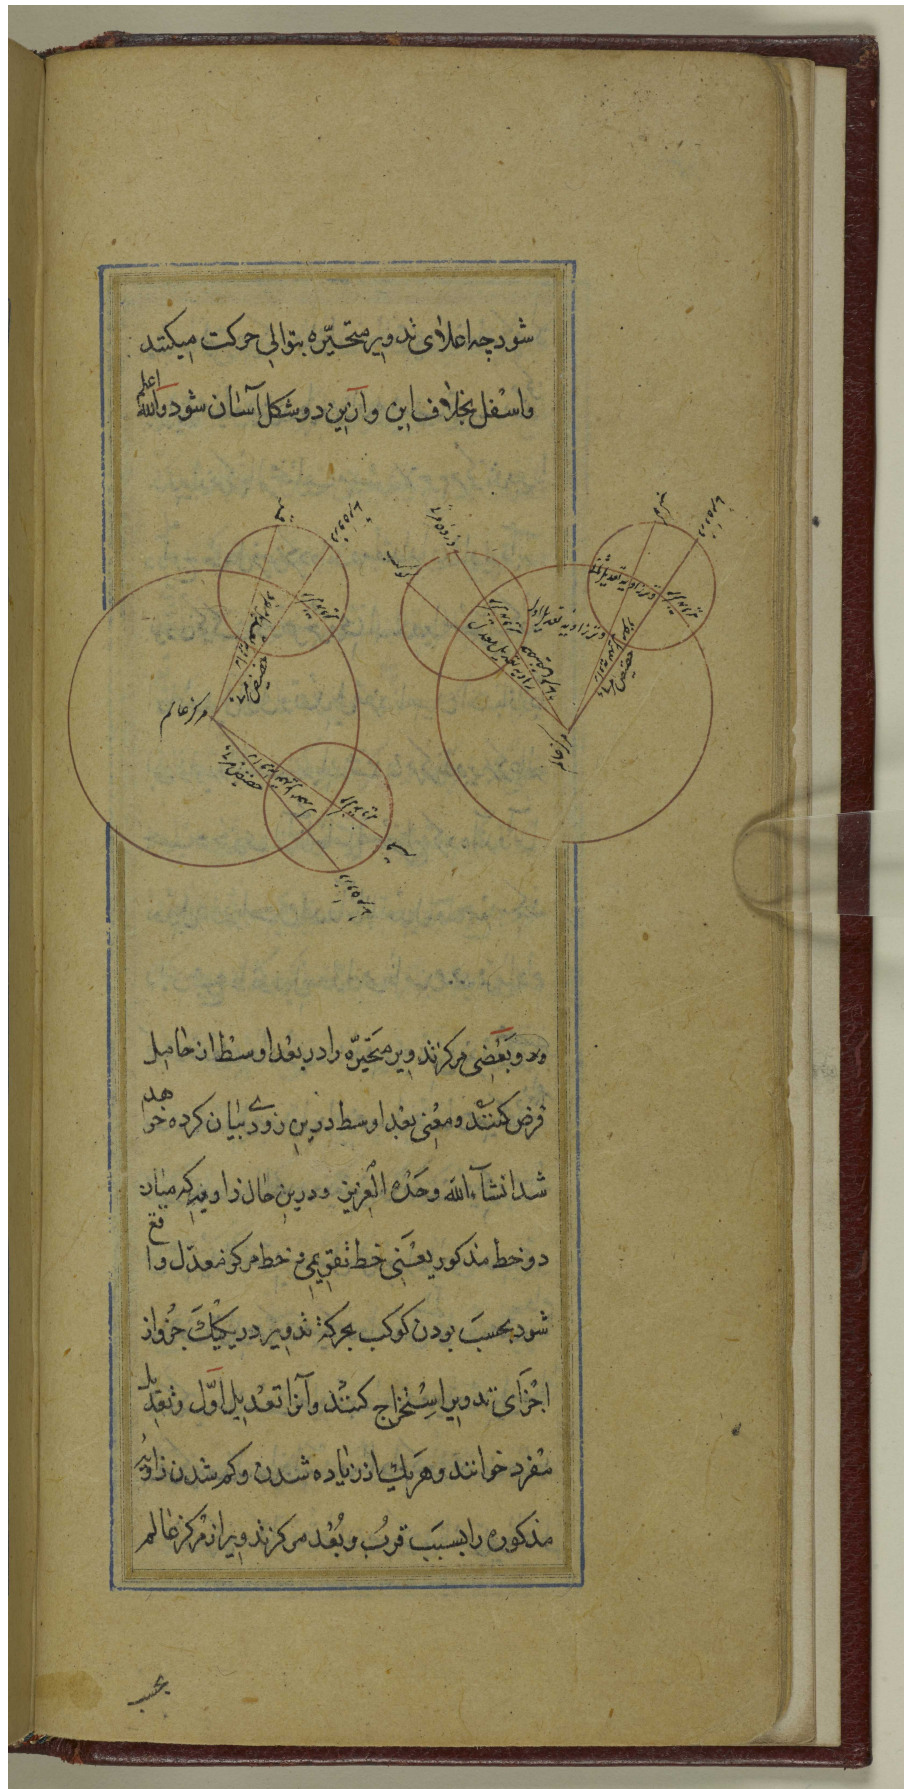 شود چه اعلای تدویر متحیّره بتوالی حرکت میکنند
واسفل بخلاف این وازین دو شکل آسان شود والله اعلم
مرکز تدویر
حضیض مرئی
مرکز عالم
وتر زاویه تعدیل اول
حضیض مرئی
مرکز تدویر
و بعضی مرکز تدویر متحیّره را در بعد اوسط از حامل
فرض کنند و معنی بعد اوسط درین زودی بیان کرده خواهد
شد انشآء الله وحده العزیز و درین حال زاویه که میان
دو خط مذکور یعنی خط تقویمی و خط مرکز معدّل واقع
شود بحسب بودن کوکب بحرکة تدویر در یکیک جزو از
اجزای تدویر استخراج کنند وآنرا تعدیل اوّل و تعدیل
مفرد خوانند و هریك از زیاده شدن و کم شدن زاویهٔ
مذکوره را بسبب قرب و بُعد مرکز تدویر از مرکز عالم
بحسب